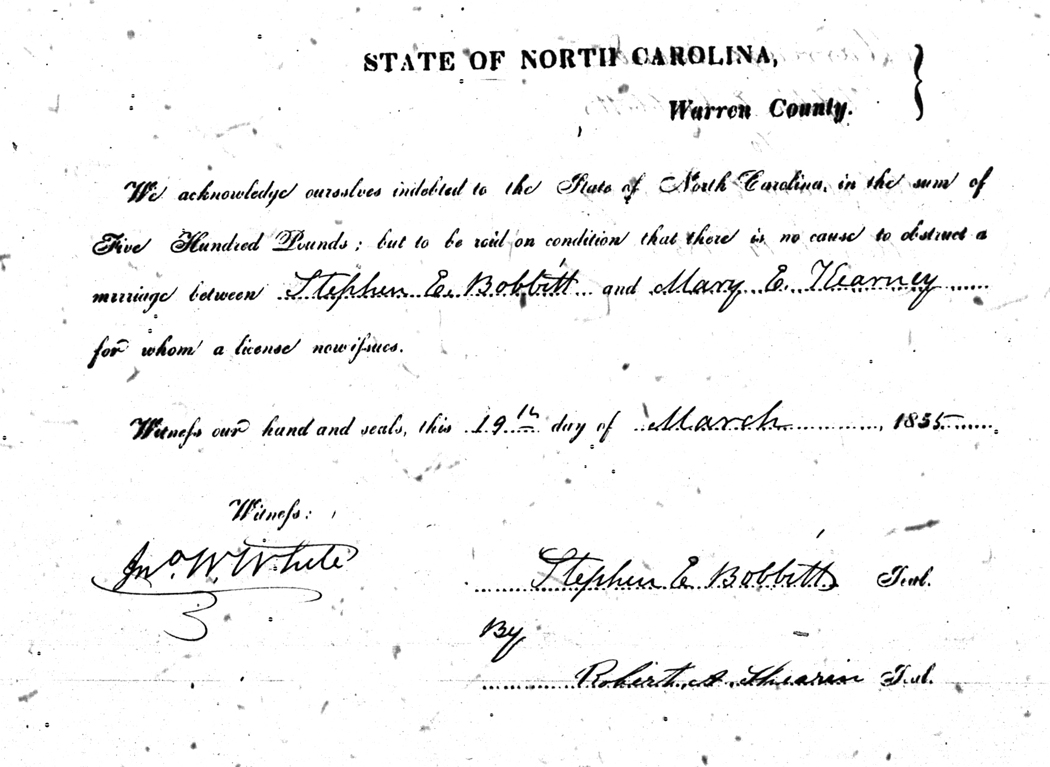 STATE OF NORTH CAROLINA,
Warren County.
We acknowledge ourselves indebted to the State of North Carolina, in the sum of
Five Hundred Pounds; but to be void on condition that there is no cause to obstruct a
marriage between Stephen E. Bobbitt and Mary E. Kearney
for whom a license now issues.
Witness our hand and seals, this 19th day of March, 1855
Witness:
Jno. W. White
Stephen E Bobbitt Seal.
By
Robert A. Shearin Seal.